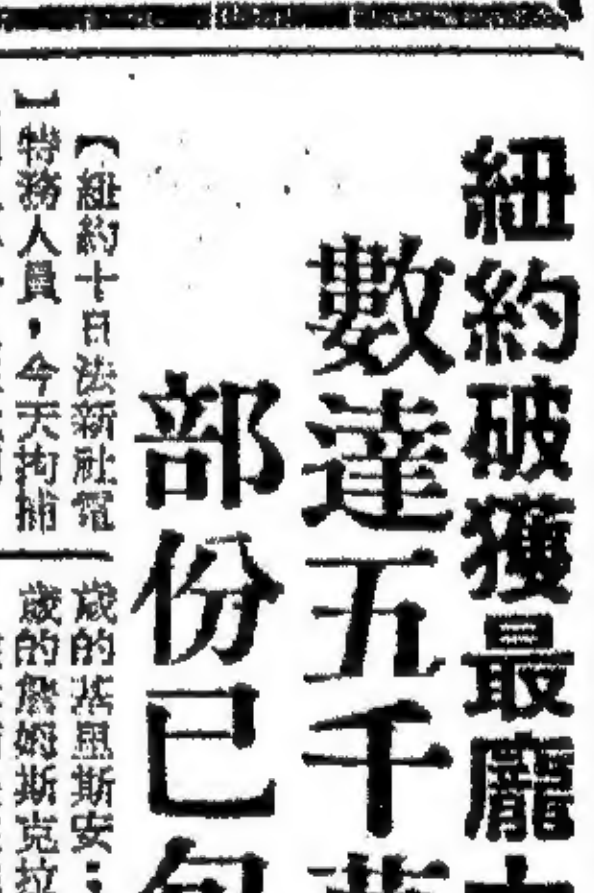 紐約破獲最龐
數達五千
部份已
【紐約十日法新社電
】特務人員，今天拘捕
歲的基里斯安：
歲的詹姆斯克拉